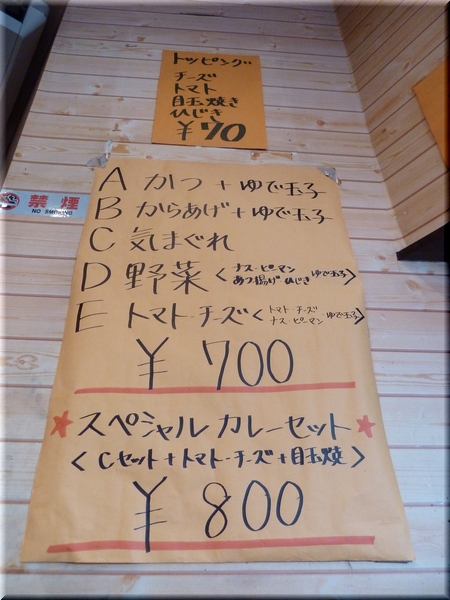 トッピング
チーズ
トマト
目玉焼き
ひじき
¥70
A かつ + ゆで玉子
B からあげ + ゆで玉子
C 気まぐれ
D 野菜 < ナス・ピーマン ゆで玉子 >
あつ揚げ ひじき
E トマト・チーズ < トマト チーズ ゆで玉子 >
ナス・ピーマン
¥700
★スペシャル カレーセット★
< Cセット+トマト・チーズ+目玉焼 >
¥800
禁煙
NO SMOKING